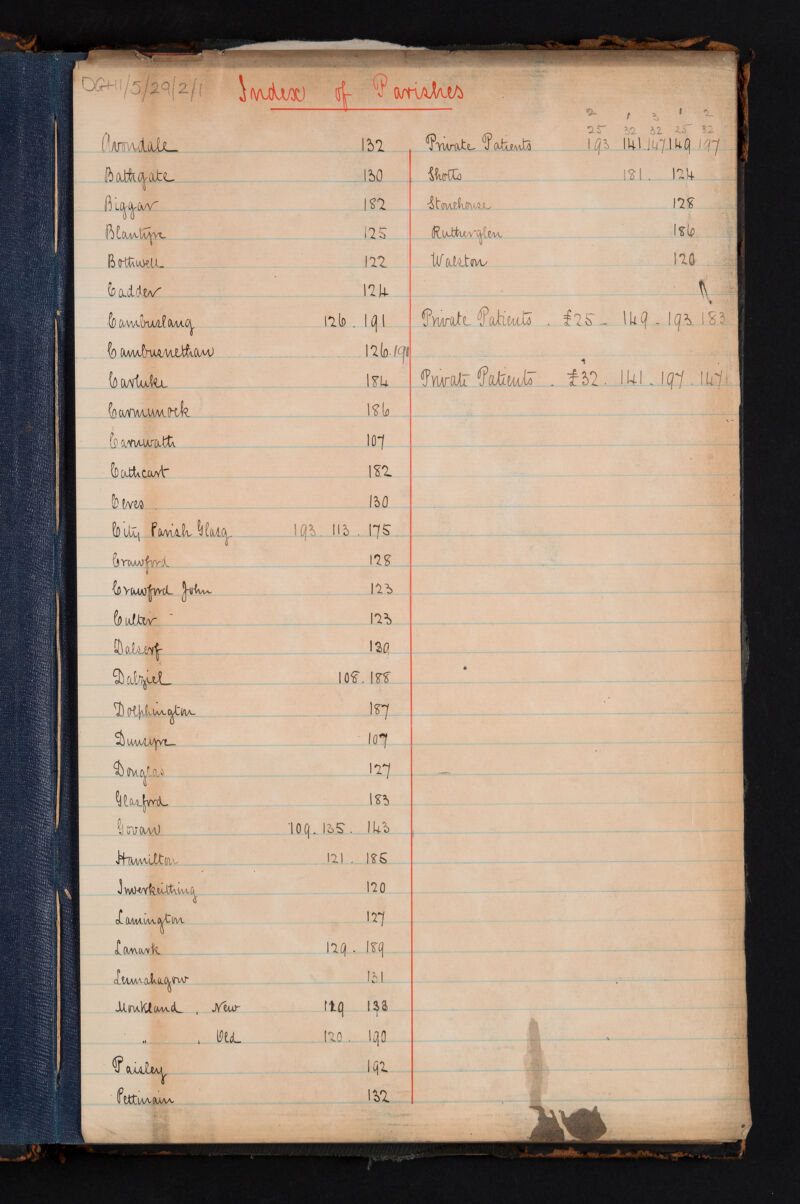 DGH1/5/29/2/1
Index of Parishes
Avondale 132
Bathgate 130
Biggar 182
Blantyre 125
Bothwell 122
Cadder 124
Cambuslang 126 . 191
Cambusnethan 126.191
Carluke 184
Carmunock 186
Carnwath 107
Cathcart 182
Ceres 130
City Parish Glasg. 193 . 113 . 175
Crawford 128
Crawford John 123
Culter 123
Dalserf 130
Dalziel 108 . 188
Dolphington 187
Dunsyre 107
Douglas 127
Glasford 183
Govan 109 . 135 . 143
Hamilton 121 . 185
Inverkeithing 120
Lamington 127
Lanark 129 . 189
Lesmahagow 131
Monkland , New 119 133
" , Old 120 . 190
Paisley 192
Pettinain 132
2 1 3 1 2
25 32 32 25 32
Private Patients 193 141 147 149 197
Shotts 181 . 124
Stonehouse 128
Rutherglen 186
Walston 120
Private Patients . £25 - 149 - 193 183
Private Patients . £32 . 141 . 197 . 147